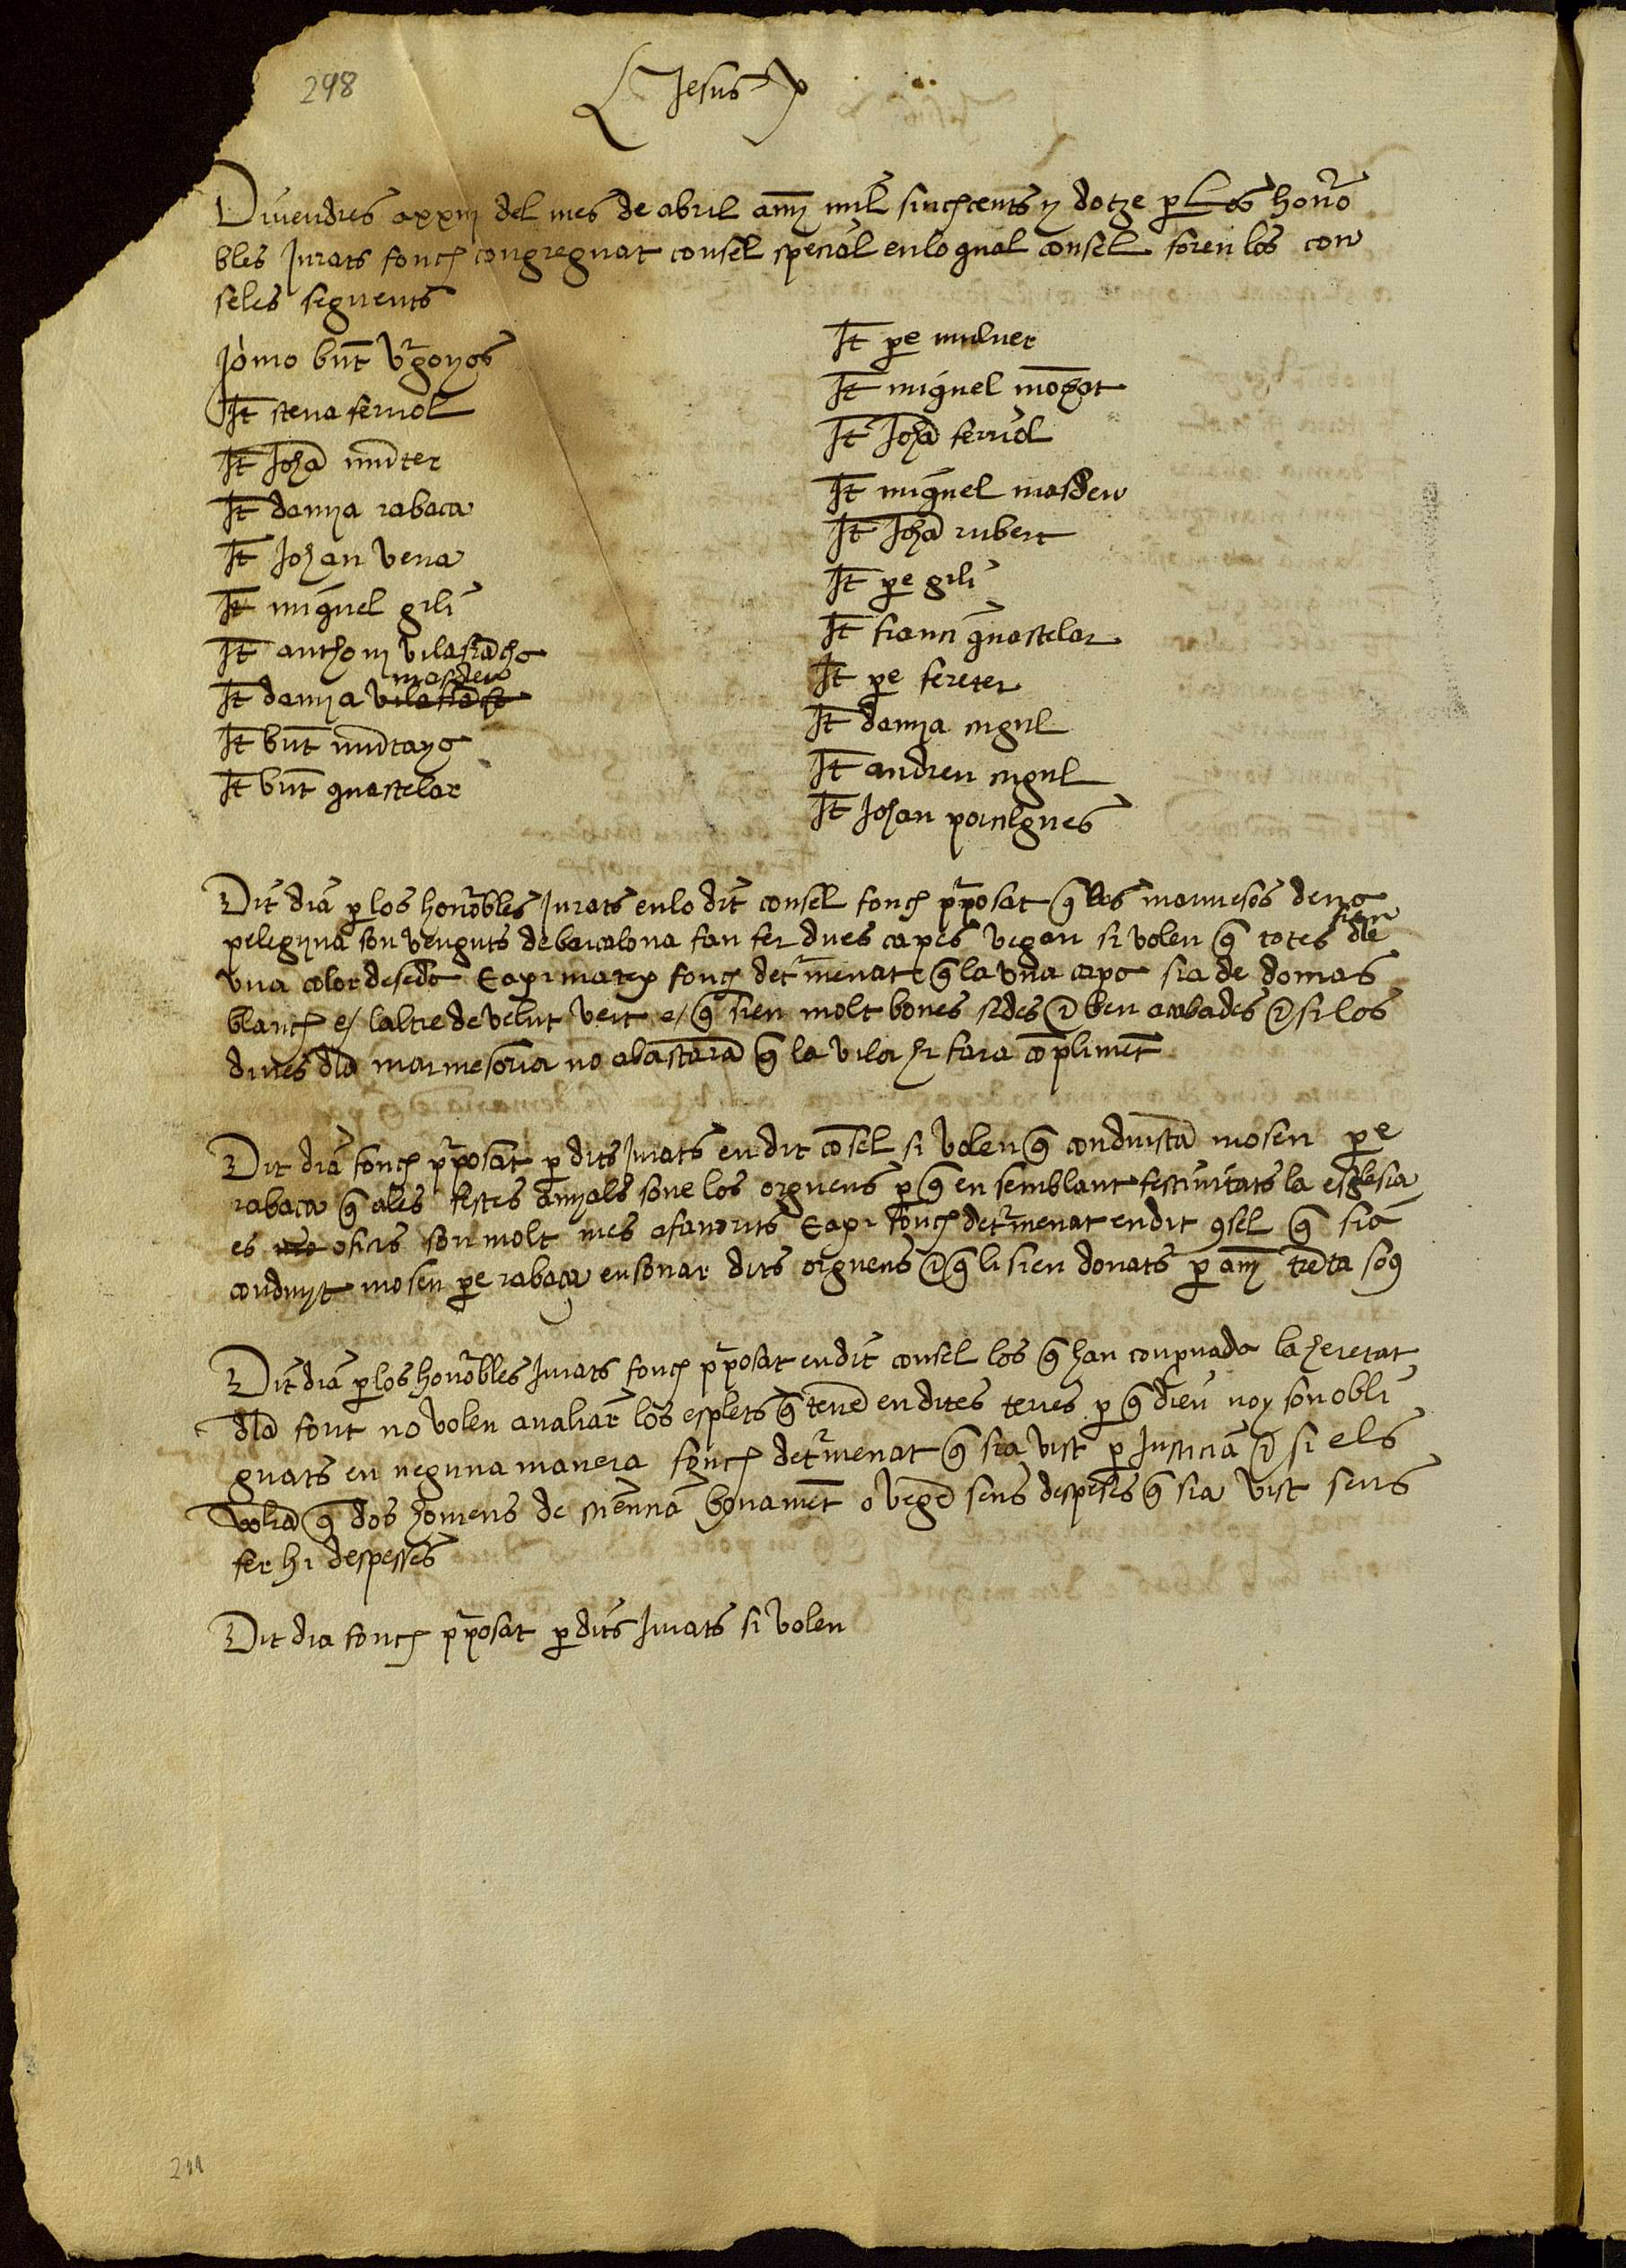 298
Jesus
Divendres a xxiij del mes de abril any mil sinchcents y dotze per los honro
bles Jurats fonch congreguat consel special en lo qual consel foren los con
seles seguents
Jómo bnt vrgoyos
It steva ferriol
It Joha munter
It damia rabaca
It Johan vena
It miguel gili
It anthoni vilafracha
masdeu
It damia vilafracha
It bnt muntayo
It bnt guastelar
It pe muluer
It miguel mogat
It Joha ferriol
It miguel masdeu
It Joha rubert
It pe gili
It franci guastelar
It pe fereter
It damia cugul
It andreu cugul
It Johan porcilgues
Dit dia per los honrobles Jurats en lo dit consel fonch pposat q los marmesos de na
pelegrina son venguts de barcalona fan fer dues capes vegan si volen q totes sien de
vna color de seda E axi matex fonch detrmenat q la vna capa sia de domas
blanch e/ laltre de velut vert e/ q sien molt bones sedes e ben acabades e si los
dines dla marmesoria no abastara q la vila hi fara compliment
Dit dia fonch pposat p dits Jurats en dit consel si volen q conduista mosen pe
rabaca q a les festes anyals sone los orguens p q en semblant festivitats la esglesia
es oficis son molt mes afavorits E axi fonch detrmenat en dit consel q sia
conduyt mosen pe rabaça en sonar dits orguens e q li sien donats p any treta sos
Dit dia p los honrobles Jurats fonch pposat en dit consel los q han comprada la heretat
dla font no volen avaliar los esplets q tene en dites terres p q dien noy son obli
guats en neguna manera fonch detrmenat q sia vist p Justicia e si els
volia q dos homens de sciencia bonament o vege sens despeses q sia vist sens
fer hi despesses
Dit dia fonch pposat p dits Jurats si volen